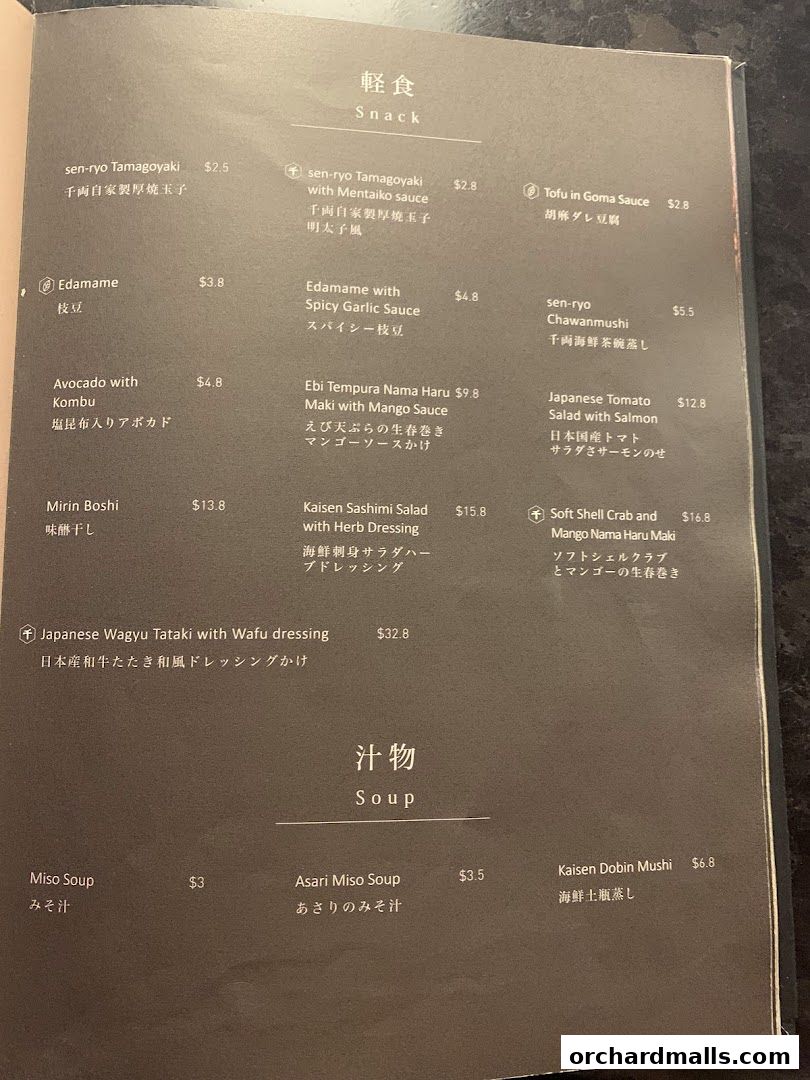 軽食
Snack
sen-ryo Tamagoyaki $2.5
千両自家製厚焼玉子
千 sen-ryo Tamagoyaki
with Mentaiko sauce $2.8
千両自家製厚焼玉子
明太子風
Tofu in Goma Sauce $2.8
胡麻ダレ豆腐
Edamame $3.8
枝豆
Edamame with
Spicy Garlic Sauce $4.8
スパイシー枝豆
sen-ryo
Chawanmushi $5.5
千両海鮮茶碗蒸し
Avocado with
Kombu $4.8
塩昆布入りアボカド
Ebi Tempura Nama Haru
Maki with Mango Sauce $9.8
えび天ぷらの生春巻き
マンゴーソースかけ
Japanese Tomato
Salad with Salmon $12.8
日本国産トマト
サラダさサーモンのせ
Mirin Boshi $13.8
味醂干し
Kaisen Sashimi Salad
with Herb Dressing $15.8
海鮮刺身サラダハー
ブドレッシング
千 Soft Shell Crab and
Mango Nama Haru Maki $16.8
ソフトシェルクラブ
とマンゴーの生春巻き
千 Japanese Wagyu Tataki with Wafu dressing $32.8
日本産和牛たたき和風ドレッシングかけ
汁物
Soup
Miso Soup $3
みそ汁
Asari Miso Soup $3.5
あさりのみそ汁
Kaisen Dobin Mushi $6.8
海鮮土瓶蒸し
orchardmalls.com